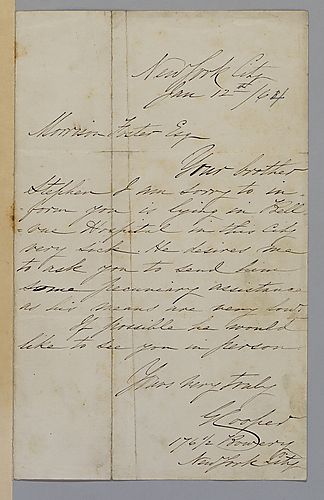 New York City
Jan 12th/64
Morrison Foster Esq
Your brother
Stephen I am sorry to in-
form you is lying in Bell-
vue Hospital in this City
very sick. He desires me
to ask you to send him
some pecuniary assistance
as his means are very low.
If possible he would
like to see you in person
Yours very truly
G Cooper
176½ Bowery
New York City